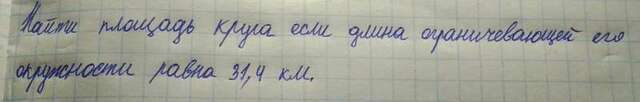 Найти площадь круга если длина ограничевающей его
окружности равна 31,4 км.